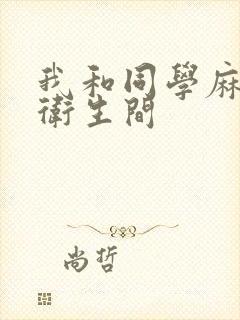 我和同學麻
衛生間
尚哲